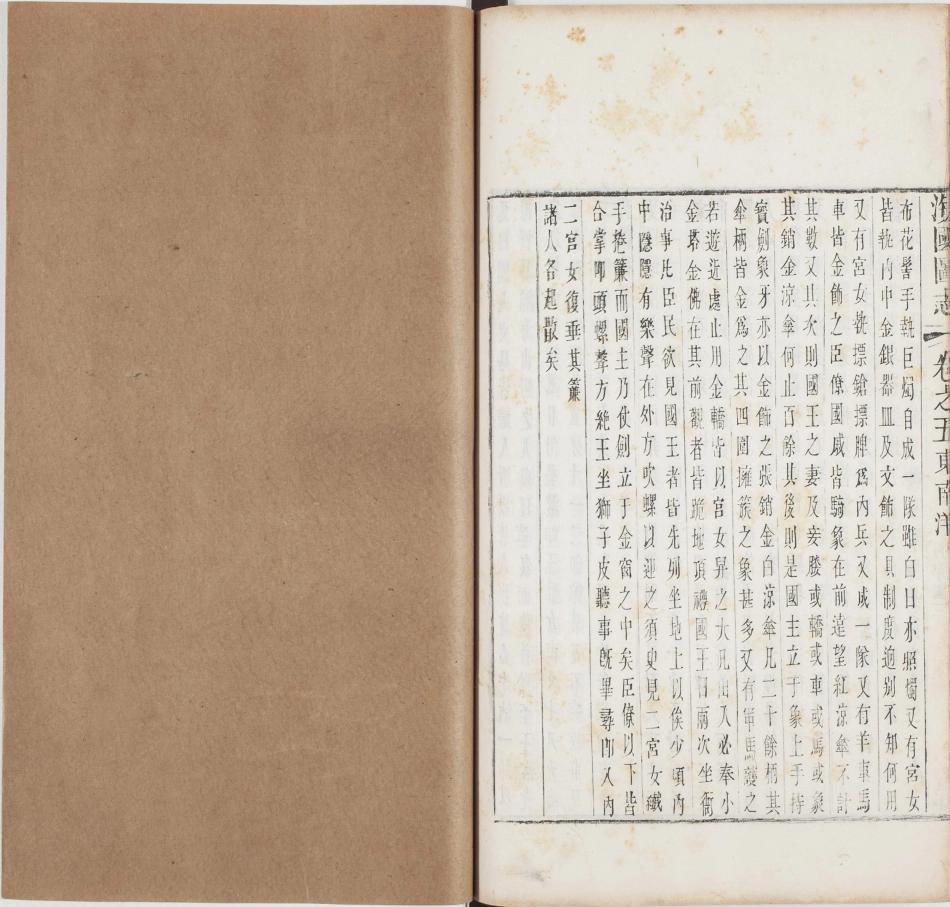 海國圖志 卷之五 東南洋
布花髻手執巨燭自成一隊雖白日亦照燭又有宮女
皆執內中金銀器皿及文飾之具制度逈别不知何用
又有宮女執摽鎗摽牌爲內兵又成一隊又有羊車馬
車皆金飾之臣僚國戚皆騎象在前遠望紅涼傘不計
其數又其次則國王之妻及妾媵或轎或車或馬或象
其銷金涼傘何止百餘其後則是國主立于象上手持
寳劍象牙亦以金飾之張銷金白涼傘凡二十餘柄其
傘柄皆金爲之其四圍擁簇之象甚多又有軍馬護之
若遊近處止用金轎皆以宮女舁之大凡出入必奉小
金塔金佛在其前觀者皆跪地頂禮國王日兩次坐衙
治事凡臣民欲見國王者皆先列坐地上以俟少頃內
中隱隱有樂聲在外方吹螺以迎之須臾見二宮女纖
手捲簾而國主乃仗劍立于金窗之中矣臣僚以下皆
合掌叩頭螺聲方絶王坐獅子皮聽事旣畢尋即入內
二宮女復垂其簾
諸人各起散矣